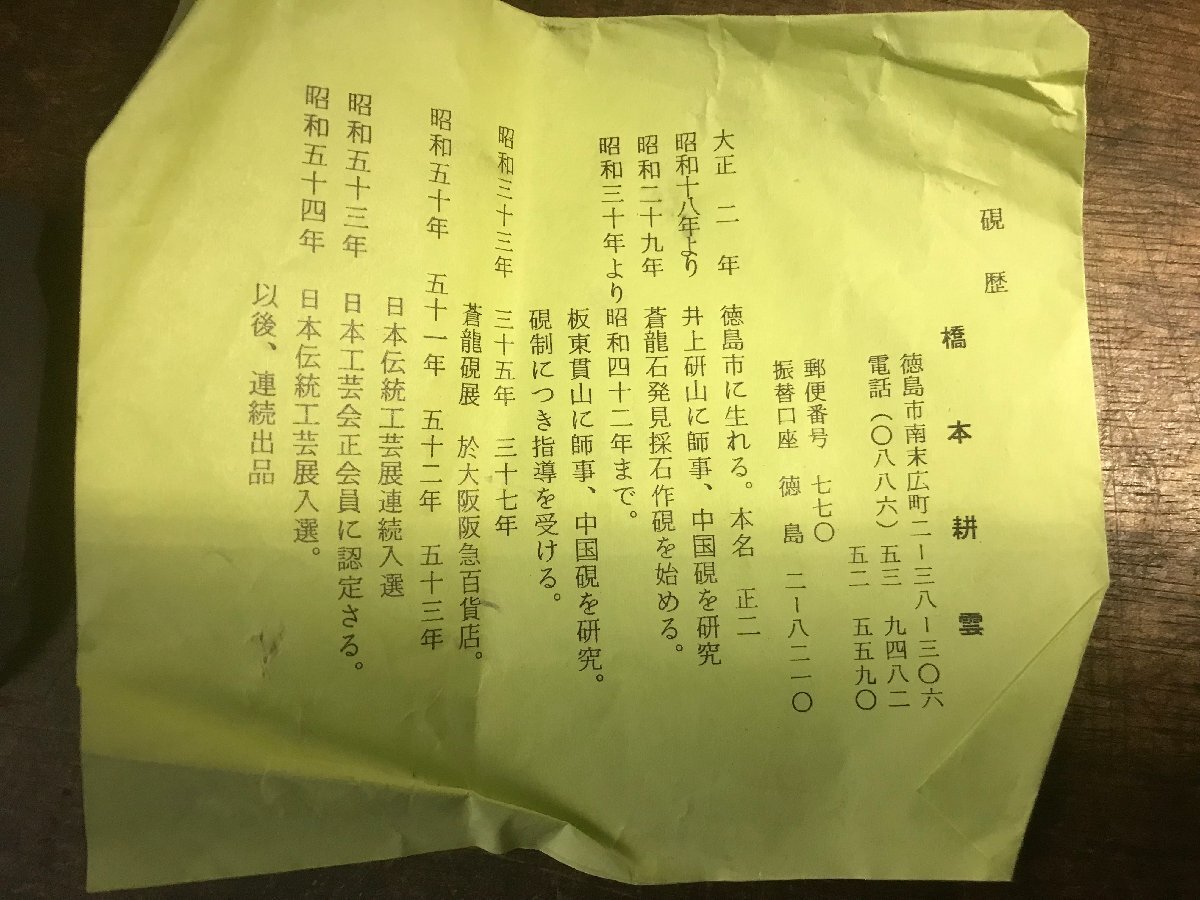 硯歴
橋本耕雲
徳島市南末広町二ー三八ー三〇六
電話(〇八八六)五三 九四八二
五二 五五九〇
郵便番号 七七〇
振替口座 徳島 二ー八二一〇
大正 二 年 徳島市に生れる。本名 正二
昭和十八年より 井上研山に師事、中国硯を研究
昭和二十九年 蒼龍石発見採石作硯を始める。
昭和三十年より昭和四十二年まで。
板東貫山に師事、中国硯を研究。
硯制につき指導を受ける。
昭和三十三年 三十五年 三十七年
蒼龍硯展 於大阪阪急百貨店。
昭和五十年 五十一年 五十二年 五十三年
日本伝統工芸展連続入選
昭和五十三年 日本工芸会正会員に認定さる。
昭和五十四年 日本伝統工芸展入選。
以後、連続出品